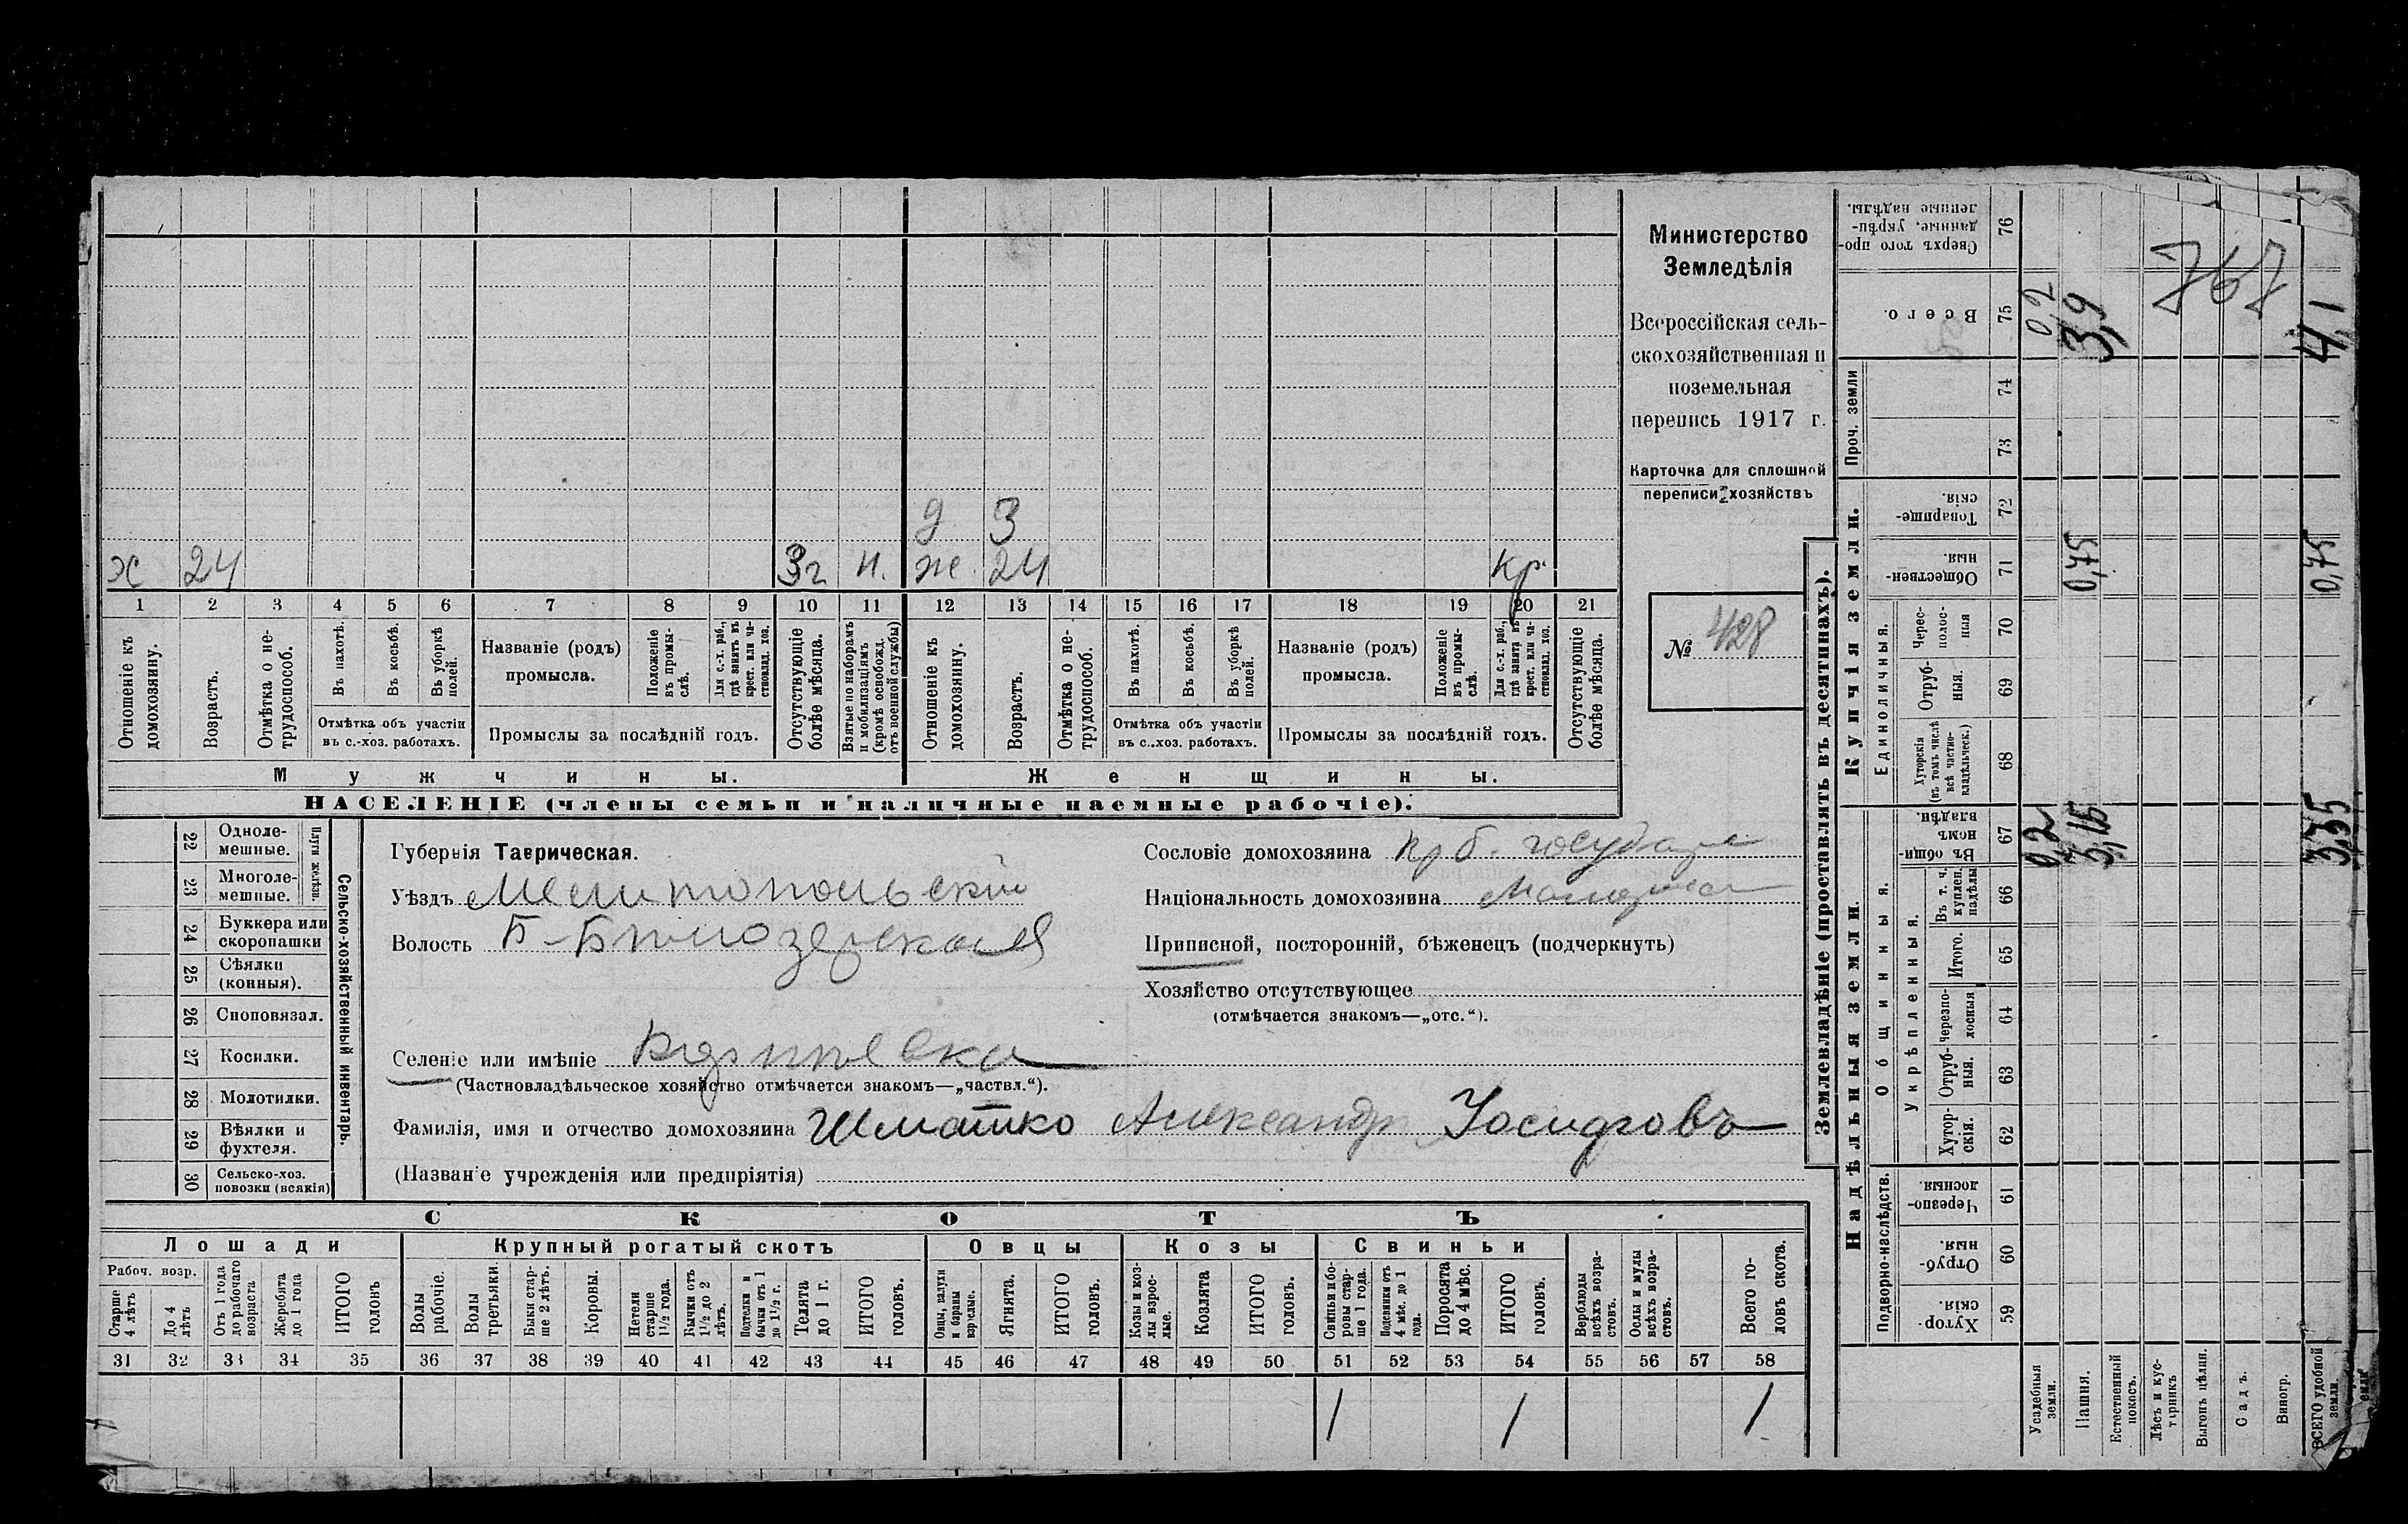 Министерство
Земледѣлія
Всероссійская сель-
скохозяйственная и
поземельная
перепись 1917 г.
Карточка для сплошной
переписи хозяйствъ
№ 428
д 3
х 24 3г н. ж 24 кр.
1 2 3 4 5 6 7 8 9 10 11 12 13 14 15 16 17 18 19 20 21
Отношеніе къ домохозяину.
Возрастъ.
Отмѣтка о не-трудоспособ.
Въ пахотѣ.
Въ косьбѣ.
Въ уборкѣ полей.
Названіе (родъ) промысла.
Положеніе въ промы-слѣ.
Для с.-х. раб., гдѣ занятъ въ крест. или ча-стновлад. хоз.
Отсутствующіе болѣе мѣсяца.
Взятые по наборамъ и мобилизаціямъ (кромѣ освобожд. отъ военной службы)
Отношеніе къ домохозяину.
Возрастъ.
Отмѣтка о не-трудоспособ.
Въ пахотѣ.
Въ косьбѣ.
Въ уборкѣ полей.
Названіе (родъ) промысла.
Положеніе въ промы-слѣ.
Для с.-х. раб., гдѣ занята въ крест. или ча-стновлад. хоз.
Отсутствующіе болѣе мѣсяца.
Отмѣтка объ участіи въ с.-хоз. работахъ.
Промыслы за послѣдній годъ.
Отмѣтка объ участіи въ с.-хоз. работахъ.
Промыслы за послѣдній годъ.
Мужчины. Женщины.
НАСЕЛЕНІЕ (члены семьи и наличные наемные рабочіе).
Сельско-хозяйственный инвентарь.
Плуги желѣзн.
22 Одноле-мешные.
23 Многоле-мешные.
24 Буккера или скоропашки
25 Сѣялки (конныя).
26 Сноповязал.
27 Косилки.
28 Молотилки.
29 Вѣялки и фухтеля.
30 Сельско-хоз. повозки (всякія)
Губернія Таврическая.
Уѣздъ Мелитопольскій
Волость Б-Бѣлозерская
Селеніе или имѣніе
(Частновладѣльческое хозяйство отмѣчается знакомъ—„частвл.“).
Фамилія, имя и отчество домохозяина Шматко Александръ
(Названіе учрежденія или предпріятія)
Сословіе домохозяина кр б.
Національность домохозяина
Приписной, посторонній, бѣженецъ (подчеркнуть)
Хозяйство отсутствующее
(отмѣчается знакомъ—„отс.“).
СКОТЪ
Лошади Крупный рогатый скотъ Овцы Козы Свиньи
Рабоч. возр.
Старше 4 лѣтъ
До 4 лѣтъ
Отъ 1 года до рабочаго возраста
Жеребята до 1 года
ИТОГО головъ
Волы рабочіе.
Волы третьяки.
Быки стар-ше 2 лѣтъ.
Коровы.
Нетели старше 1½ года.
Бычки отъ 1½ до 2 лѣтъ.
Подтелки и бычки отъ 1 до 1½ г.
Телята до 1 г.
ИТОГО головъ.
Овцы, валухи и бараны взрослые.
Ягнята.
ИТОГО головъ.
Козы и коз-лы взрос-лые.
Козлята
ИТОГО головъ.
Свиньи и бо-ровы стар-ше 1 года.
Подсвинки отъ 4 мѣс. до 1 года.
Поросята до 4 мѣс.
ИТОГО головъ.
Верблюды всѣхъ возра-стовъ.
Ослы и мулы всѣхъ возра-стовъ.
Всего го-ловъ скота.
31 32 33 34 35 36 37 38 39 40 41 42 43 44 45 46 47 48 49 50 51 52 53 54 55 56 57 58
1 1 1
Землевладѣніе (проставлять въ десятинахъ).
Надѣльныя земли.
Купчія земли.
Проч. земли
Подворно-наслѣдств.
Общинныя.
Укрѣпленныя.
Единоличныя.
Хутор-скія. 59
Отруб-ныя. 60
Черезпо-лосныя. 61
Хутор-скія. 62
Отруб-ныя. 63
Черезпо-лосныя 64
Итого. 65
Въ т. ч. куплен. надѣлы 66
Въ общи-номъ владѣн. 67
Хуторскія (въ томъ числѣ всѣ частно-владѣльческ.) 68
Отруб-ныя. 69
Черес-полос-ныя 70
Обществен-ныя. 71
Товарище-скія. 72
73
74
Всего. 75
Сверхъ того про-данные, укрѣп-ленные надѣлы. 76
Усадебныя земли. 0,2 0,2
Пашня. 3,15 0,75 3,9
Естественный покосъ.
Лѣсъ и кус-тарникъ
Выгонъ цѣлин.
Садъ.
Виногр.
ВСЕГО удобной земли. 3,35 0,75 4,1
767